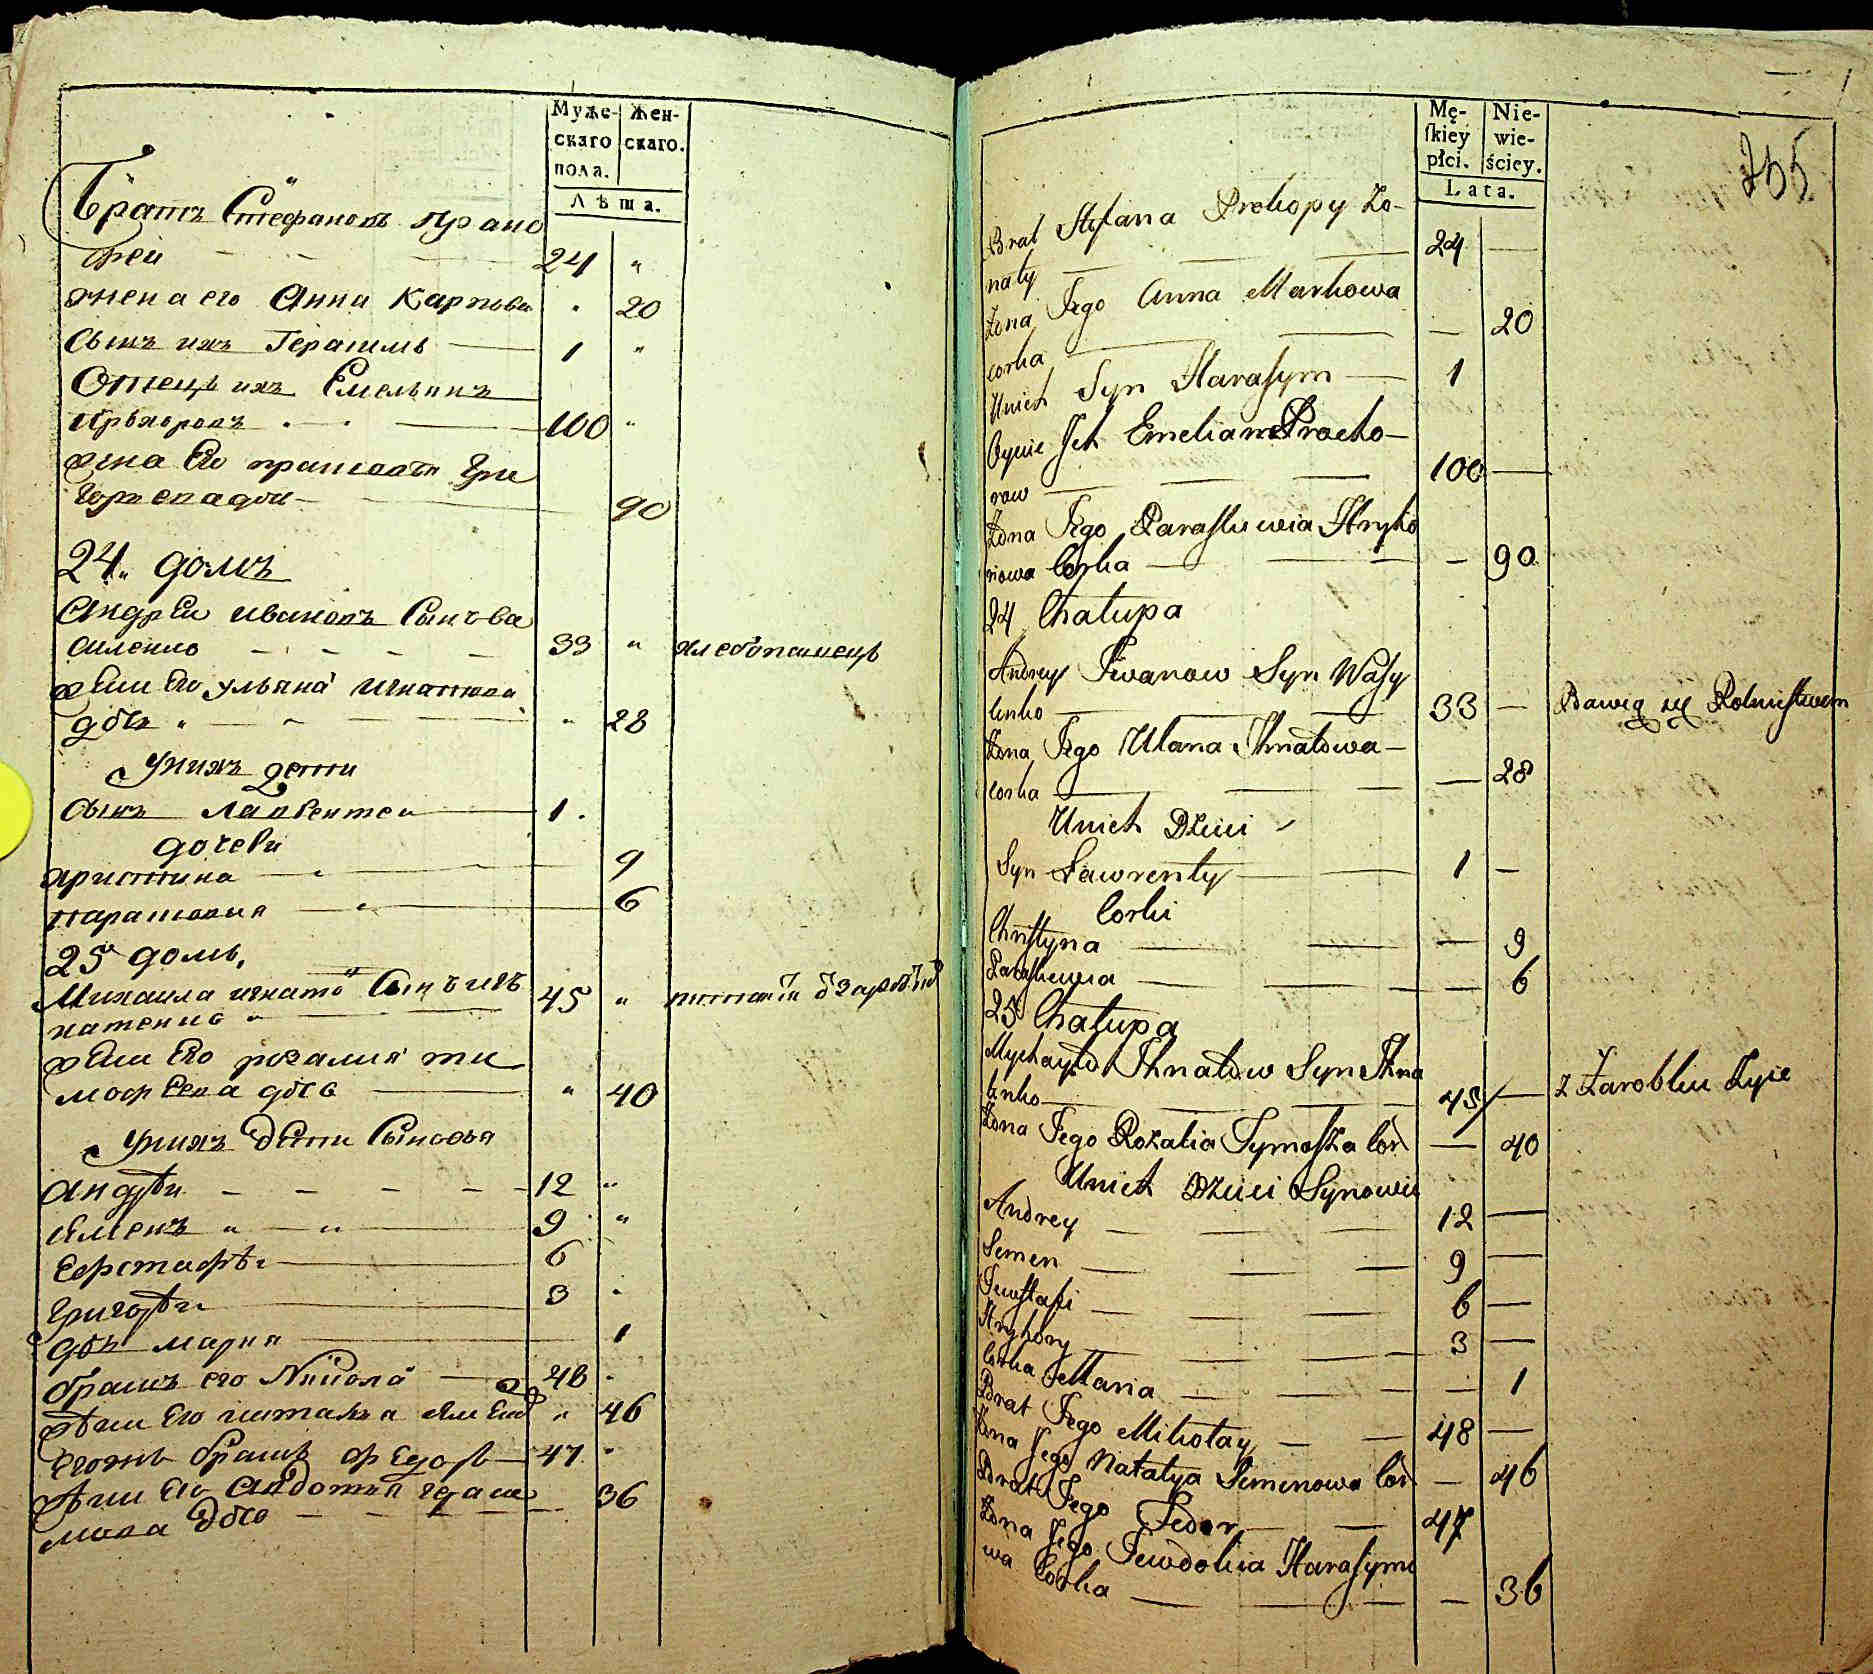 Муже-
скаго
пола.
Жен-
скаго.
Лѣта.
Братъ Стефановъ
24 "
жена его Анна Карпова " 20
Сынъ ихъ Герасимъ 1 "
Отецъ ихъ Емельянъ
Прохоровъ 100 "
жена Его Гри
90
24. домъ
Андрей Ивановъ Сынъ Ва
силенко 33 " хлебопашецъ
жена Его Ульяна Игнатова
дочь " 28
У нихъ дети
Сынъ Лаврентей 1.
дочери
Христина 9
Парасковия 6
25 домъ,
Михаила Сынъ Иг
натенко 45 "
Его розалия ти
мофеева дочь " 40
У нихъ дети Сыновья
Андрѣй 12 "
Семенъ " " 9 "
Еѵстафѣй 6
Григорѣй 3 "
дочь Мария 1
братъ его Никола 48 "
жена Его наталья " 46
братъ Федоръ 47 "
жена Его Авдотия Гераси
мова дочь 36
Mę-
ſkiey
płci.
Nie-
wie-
ściey.
Lata.
255
Brat Stefana Prokopy Żo-
naty 24 —
Żona Jego Anna Markowa
corka — 20
Unich Syn Harasym 1
Oyciec Jch Emelian Procho-
row 100 —
Żona Jego Paraskuwia Hryho
riowa Corka — 90
24 Chałupa
Andrey Jwanow Syn Wasy
linko 33 — Bawią się Rolnictwem
Żona Jego Ulana Jhnatowa
corka — 28
Unich Dzieci
Syn Ławrenty 1 —
Corki
Chrystyna — 9
Paraskiewia — 6
25 Chałupa
Mychayło Jhnatow Syn Jhna
tenko 45 — z Zarobku Żyie
Żona Jego Rozalia Tymofka Cor — 40
Unich Dzieci Synowie
Andrey 12 —
Semen 9 —
Jewstafi 6 —
Hryhory 3 —
Corka Maria — 1
Brat Jego Mikołay 48 —
Żona Jego Natalya Semenowa Cor — 46
Brat Jego Fedor 47
Żona Jego Jewdokia Harasymo
wa Corka — 36